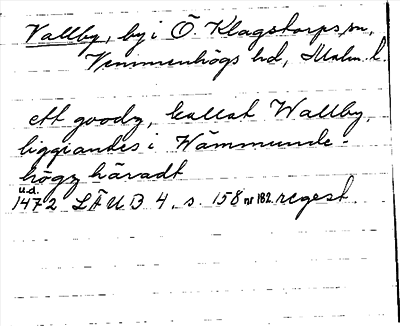 Vallby, by i Ö. Klagstorps sn,
Vemmenhögs hd, Malm. l.
ett goodz, kallat Wallby,
liggiandes i Wämmunde-
högz häradt
u.d.
1472 LÄUB 4, s. 158 nr 182 regest.